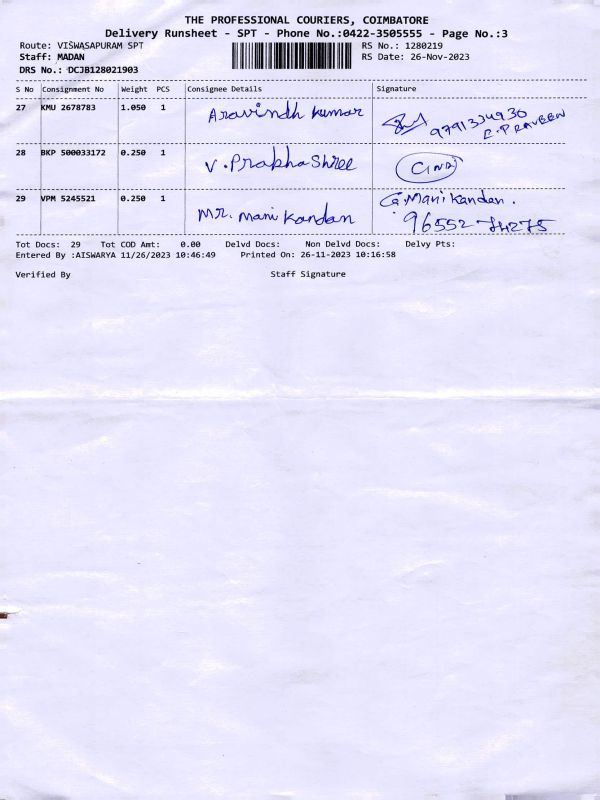 THE PROFESSIONAL COURIERS, COIMBATORE
Delivery Runsheet - SPT - Phone No.:0422-3505555 - Page No.:3
Route: VISWASAPURAM SPT RS No.: 1280219
Staff: MADAN RS Date: 26-Nov-2023
DRS No.: DCJB128021903
S No Consignment No Weight PCS Consignee Details Signature
27 KMU 2678783 1.050 1 Aravindh Kumar 9791334930
R.PRAVEEN
28 BKP 500033172 0.250 1 V.Prabha Shree
29 VPM 5245521 0.250 1 Mr. Manikandan G.Manikandan.
96552 74275
Tot Docs: 29 Tot COD Amt: 0.00 Delvd Docs: Non Delvd Docs: Delvy Pts:
Entered By :AISWARYA 11/26/2023 10:46:49 Printed On: 26-11-2023 10:16:58
Verified By Staff Signature